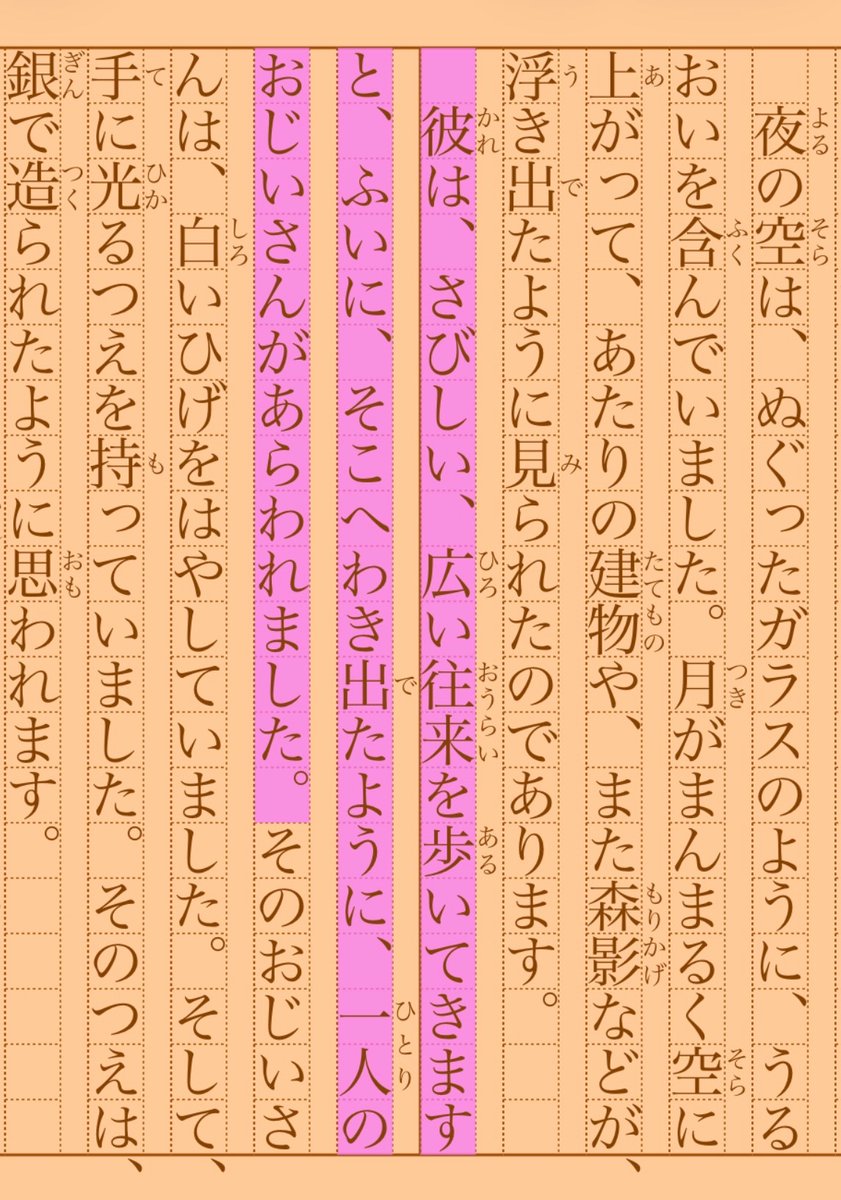 夜の空は、ぬぐったガラスのように、うる
おいを含んでいました。月がまんまるく空に
上がって、あたりの建物や、また森影などが、
浮き出たように見られたのであります。
　彼は、さびしい、広い往来を歩いてきます
と、ふいに、そこへわき出たように、一人の
おじいさんがあらわれました。そのおじいさ
んは、白いひげをはやしていました。そして、
手に光るつえを持っていました。そのつえは、
銀で造られたように思われます。